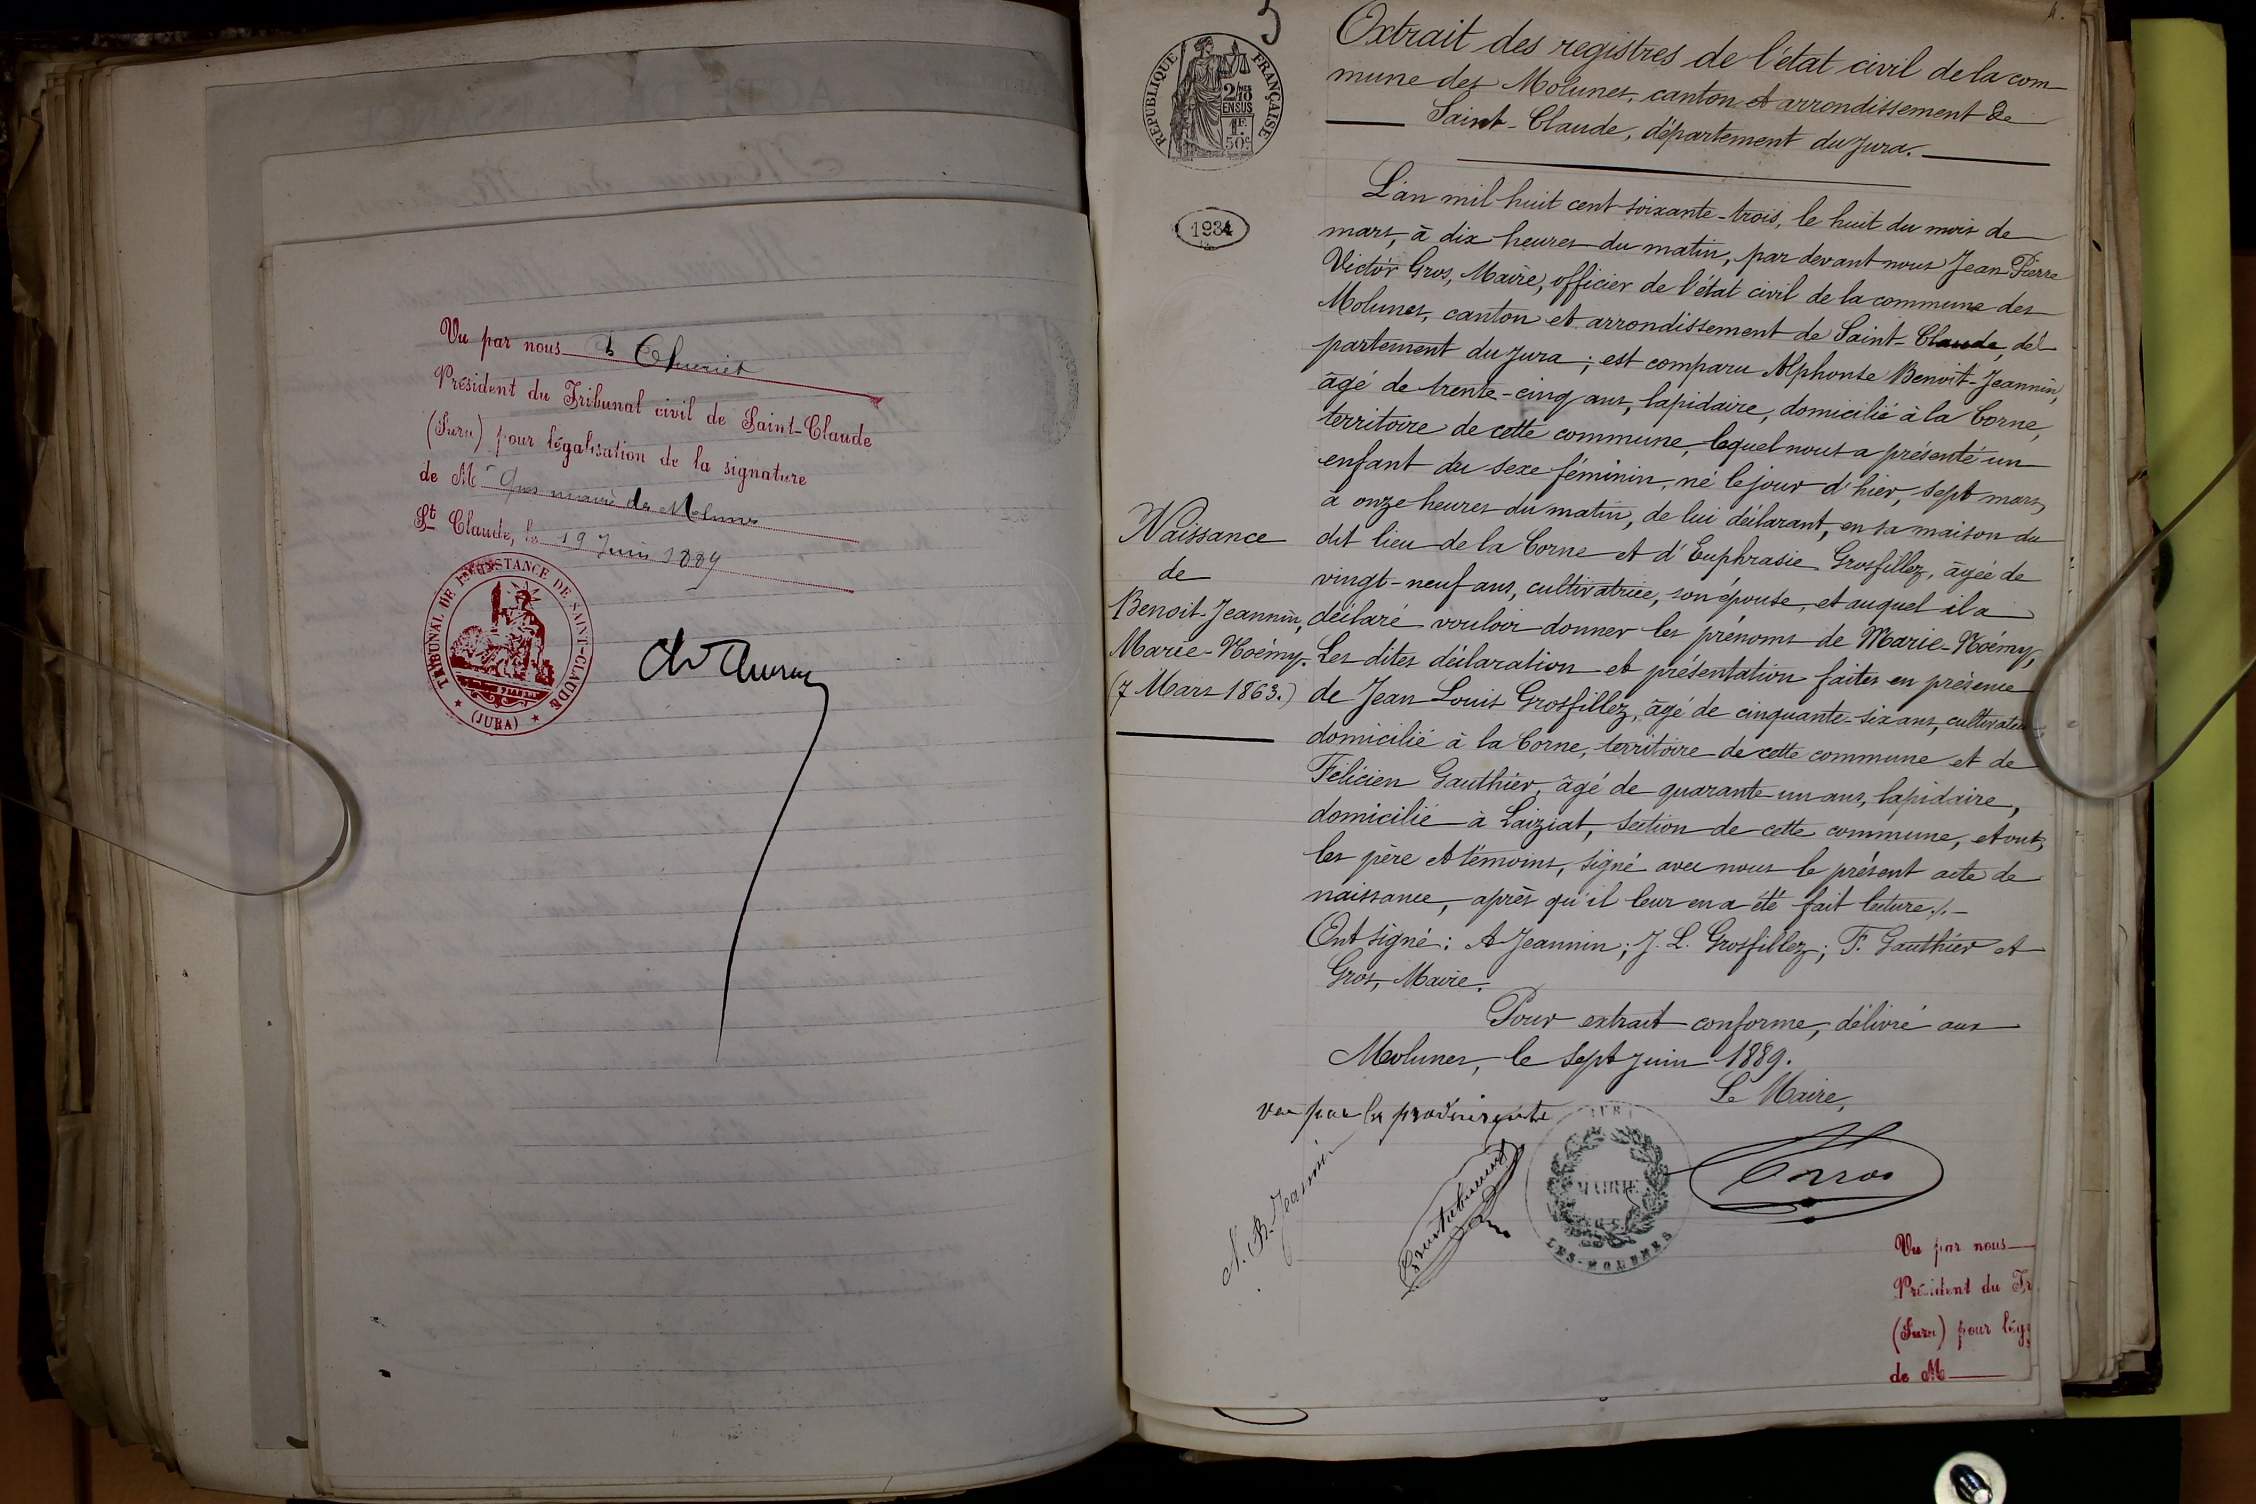 Vu par nous Ch Thuriet
Président du Tribunal civil de Saint-Claude
(Jura) pour légalisation de la signature
de M Gros maire des Molunes
St Claude, le 19 Juin 1889
TRIBUNAL DE 1ère INSTANCE DE SAINT-CLAUDE
(JURA)
Extrait des registres de l'état civil de la com
mune des Molunes, canton et arrondissement de
Saint-Claude, département du Jura.
RÉPUBLIQUE FRANÇAISE
2/10
EN SUS
1F.
50c
1934
L'an mil huit cent soixante-trois, le huit du mois de
mars, à dix heures du matin, par devant nous Jean Pierre
Victor Gros, Maire, officier de l'état civil de la commune des
Molunes, canton et arrondissement de Saint-Claude, dé
partement du Jura; est comparu Alphonse Benoit-Jeannin,
âgé de trente-cinq ans, lapidaire, domicilié à la Corne,
territoire de cette commune, lequel nous a présenté un
enfant du sexe féminin, né le jour d'hier, sept mars,
à onze heures du matin, de lui déclarant, en sa maison du
dit lieu de la Corne et d'Euphrasie Grosfillez, âgée de
vingt-neuf ans, cultivatrice, son épouse, et auquel il a
déclaré vouloir donner les prénoms de Marie-Noémy,
Les dites déclaration et présentation faites en présence
de Jean Louis Grosfillez, âgé de cinquante-six ans, cultivateur,
domicilié à la Corne, territoire de cette commune et de
Félicien Gauthier, âgé de quarante-un ans, lapidaire,
domicilié à Laiziat, section de cette commune, et ont,
les père et témoins, signé avec nous le présent acte de
naissance, après qu'il leur en a été fait lecture./.
Ont signé: A Jeannin; J. L. Grosfillez; F. Gauthier et
Gros, Maire.
Naissance
de
Benoit-Jeannin,
Marie-Noémy.
(7 Mars 1863.)
Pour extrait conforme, délivré aux
Molunes, le sept juin 1889.
Le Maire,
vu par la
N. B. Jeannin
MAIRIE
LES-MOLUNES
Gros
Vu par nous
Président du Tr
(Jura) pour lég
de M